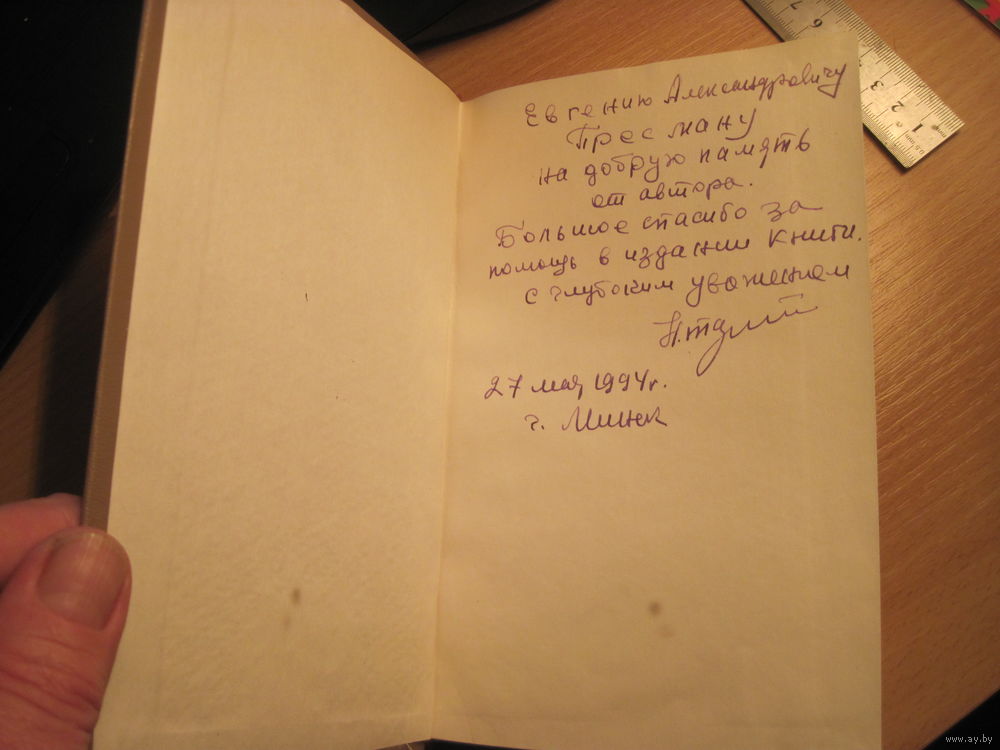 Евгению Александровичу
Пресману
на добрую память
от автора.
Большое спасибо за
помощь в издании книги.
С глубоким уважением
27 мая 1994г.
г. Минск
7 6
3 2 1
www.ay.by